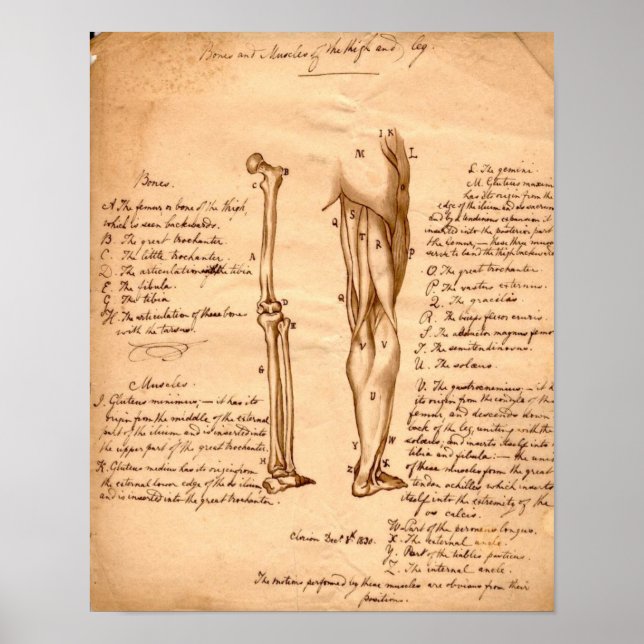 Bones and Muscles of the thigh and leg.
Bones.
A. The femur or bone of the thigh,
which is seen backwards.
B. The great trochanter.
C. The little trochanter.
D. The articulation of the tibia
E. The fibula.
G. The tibia
H. The articulation of these bone
with the tarsus.
Muscles.
J. Gluteus minimus; — it has its
origin from the middle of the external
part of the ilium and is inserted into
the upper part of the great trochanter.
K. Gluteus medius has its origin from
the external lower edge of the os ilium
and is inserted into the great trochanter.
C
B
A
D
E
G
H
I K
M
L
O
Q
S
T
R
P
Q
V
V
U
Y
W
Z
X
L. The gemini.
M. Gluteus maximus
has its origin from the
edge of the ilium and os sacrum
and by a tendenous expansion it
inserted into the posterior part
the femur, — these three muscles
serve to bend the thigh backward
O. The great trochanter.
P. The vastus externus.
Q. The gracilis
R. The biceps flexor cruris.
S. The adductor magnus femo
T. The semitendinosus.
U. The solœus.
V. The gastrocnemius, — it ha
its origin from the condyls of the
femur, and descends down
back of the leg, uniting with the
solœus, and inserts itself into
tibia and fibula: — the unio
of these muscles from the great
tendon achilles which inserts
itself into the extremity of the
os calcis.
W. Part of the peroneus longus.
X. The external ancle.
Y. Part of the tibiales posticus.
Z. The internal ancle.
Clarion Decr. 8th 1830.
The motions performed by these muscles are obvious from their
positions.